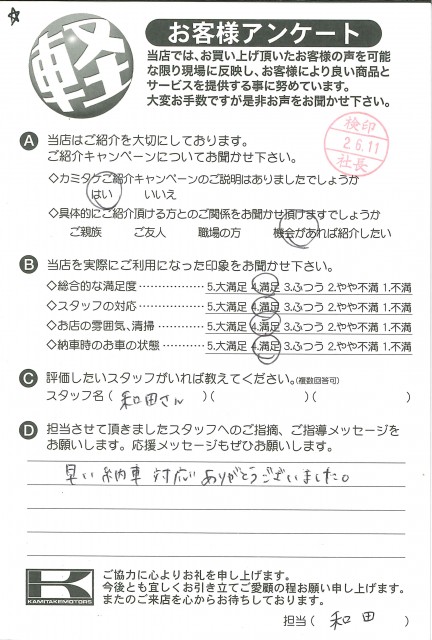 軽
お客様アンケート
当店では、お買い上げ頂いたお客様の声を可能
な限り現場に反映し、お客様により良い商品と
サービスを提供する事に努めています。
大変お手数ですが是非お声をお聞かせ下さい。
検印
26.11
社長
A 当店はご紹介を大切にしております。
ご紹介キャンペーンについてお聞かせ下さい。
◇カミタケご紹介キャンペーンのご説明はありましたでしょうか
はい いいえ
◇具体的にご紹介頂ける方とのご関係をお聞かせ頂けますでしょうか
ご親族 ご友人 職場の方 機会があれば紹介したい
B 当店を実際にご利用になった印象をお聞かせ下さい。
◇総合的な満足度 5.大満足 4.満足 3.ふつう 2.やや不満 1.不満
◇スタッフの対応 5.大満足 4.満足 3.ふつう 2.やや不満 1.不満
◇お店の雰囲気、清掃 5.大満足 4.満足 3.ふつう 2.やや不満 1.不満
◇納車時のお車の状態 5.大満足 4.満足 3.ふつう 2.やや不満 1.不満
C 評価したいスタッフがいれば教えてください。(複数回答可)
スタッフ名( 和田さん )( )( )
D 担当させて頂きましたスタッフへのご指摘、ご指導メッセージを
お願いします。応援メッセージもぜひお願いします。
早い納車 対応 ありがとうございました。
KAMITAKEMOTORS
ご協力に心よりお礼を申し上げます。
今後とも宜しくお引き立てご愛顧の程お願い申し上げます。
またのご来店を心からお待ちしております。
担当( 和田 )